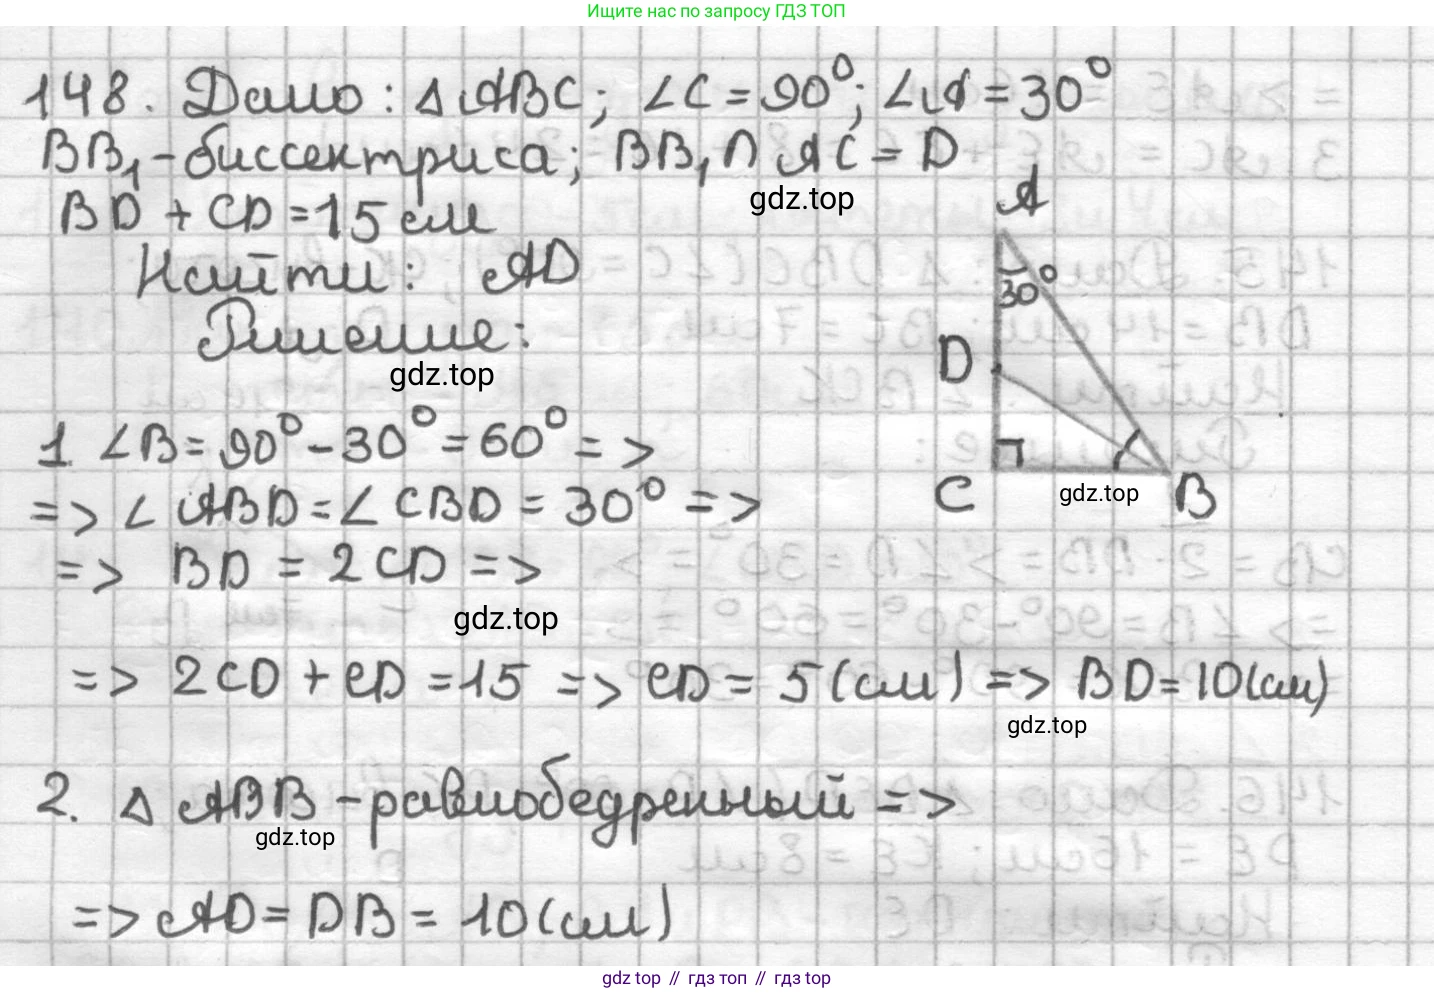 Ищите нас по запросу ГДЗ ТОП
148. Дано: △ABC; ∠C = 90°; ∠A = 30°
BB₁ - биссектриса; BB₁ ∩ AC = D
gdz.top
BD + CD = 15 см
Найти: AD
Решение:
gdz.top
1. ∠B = 90° - 30° = 60° =>
=> ∠ABD = ∠CBD = 30° =>
=> BD = 2CD =>
gdz.top
=> 2CD + CD = 15 => CD = 5 (см) => BD = 10 (см)
gdz.top
2. △ABB - равнобедренный =>
gdz.top
=> AD = DB = 10 (см)
A
30°
D
C
gdz.top
B
gdz top // гдз топ // гдз top